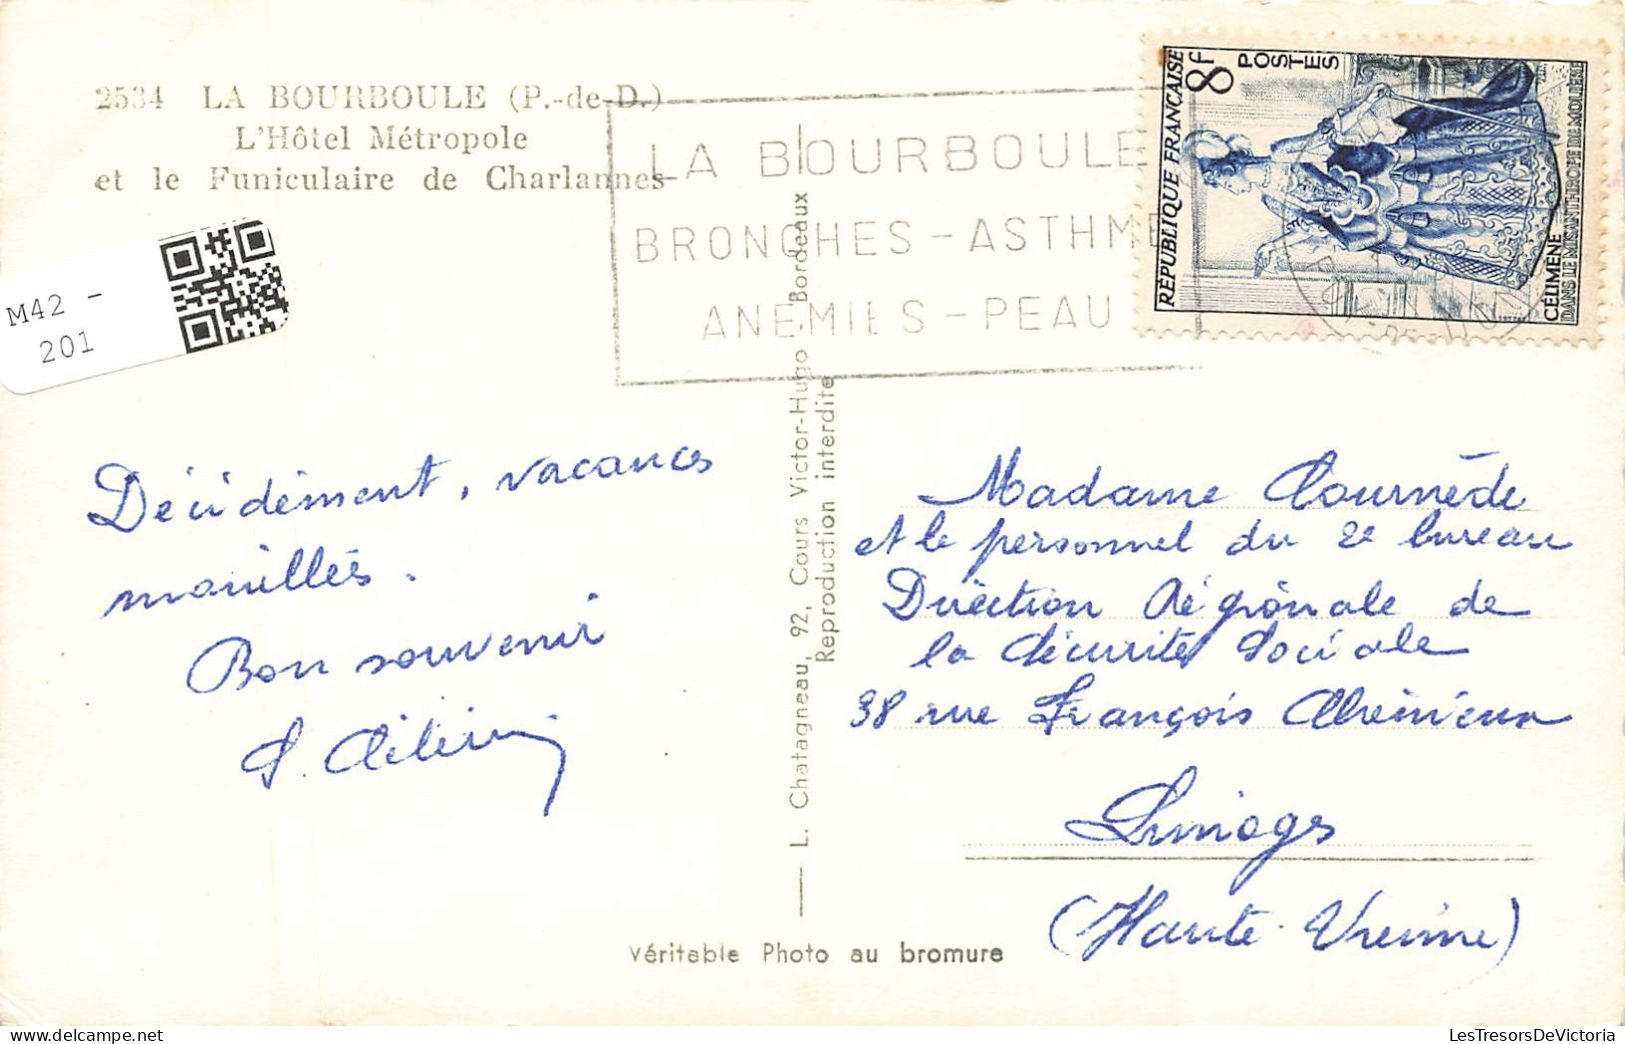 2534 LA BOURBOULE (P.-de-D.)
L'Hôtel Métropole
et le Funiculaire de Charlannes
M42 -
201
LA BOURBOULE
BRONCHES - ASTHME
ANEMIES - PEAU
RÉPUBLIQUE FRANÇAISE
8F
POSTES
CÉLIMÈNE
DANS LE MISANTHROPE DE MOLIÈRE
Décidément, vacances
mouillées.
Bon souvenir
L. Chatagneau, 92, Cours Victor-Hugo, Bordeaux
Reproduction interdite
Madame Cournède
et le personnel du 2e bureau
Direction Régionale de
la Sécurité Sociale
38 rue François Chénieux
Limoges
(Haute-Vienne)
Véritable Photo au bromure
LesTresorsDeVictoria